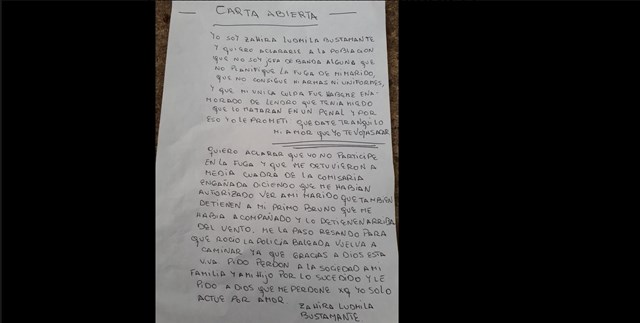 CARTA ABIERTA
YO SOY ZAHIRA LUDMILA BUSTAMANTE
Y QUIERO ACLARARLE A LA POBLACION
QUE NO SOY JEFA DE BANDA ALGUNA QUE
NO PLANIFIQUE LA FUGA DE MI MARIDO,
QUE NO CONSEGUI NI ARMAS NI UNIFORMES,
Y QUE MI UNICA CULPA FUE HABERME ENA-
MORADO DE LENDRO QUE TENIA MIEDO
QUE LO MATARAN EN UN PENAL Y POR
ESO YO LE PROMETI QUEDATE TRANQUILO
MI AMOR QUE YO TE VOY A SACAR
QUIERO ACLARAR QUE YO NO PARTICIPE
EN LA FUGA Y QUE ME DETUVIERON A
MEDIA CUADRA DE LA COMISARIA
ENGAÑADA DICIENDO QUE ME HABIAN
AUTORIZADO VER A MI MARIDO QUE TAMBIEN
DETIENEN A MI PRIMO BRUNO QUE ME
HABIA ACOMPAÑADO Y LO DETIENEN ARRIBA
DEL VENTO. ME LA PASO RESANDO PARA
QUE ROCIO LA POLICIA BALEADA VUELVA A
CAMINAR YA QUE GRACIAS A DIOS ESTA
VIVA PIDO PERDON A LA SOCIEDAD A MI
FAMILIA Y A MI HIJO POR LO SUCEDIDO Y LE
PIDO A DIOS QUE ME PERDONE XQ YO SOLO
ACTUE POR AMOR
ZAHIRA LUDMILA
BUSTAMANTE